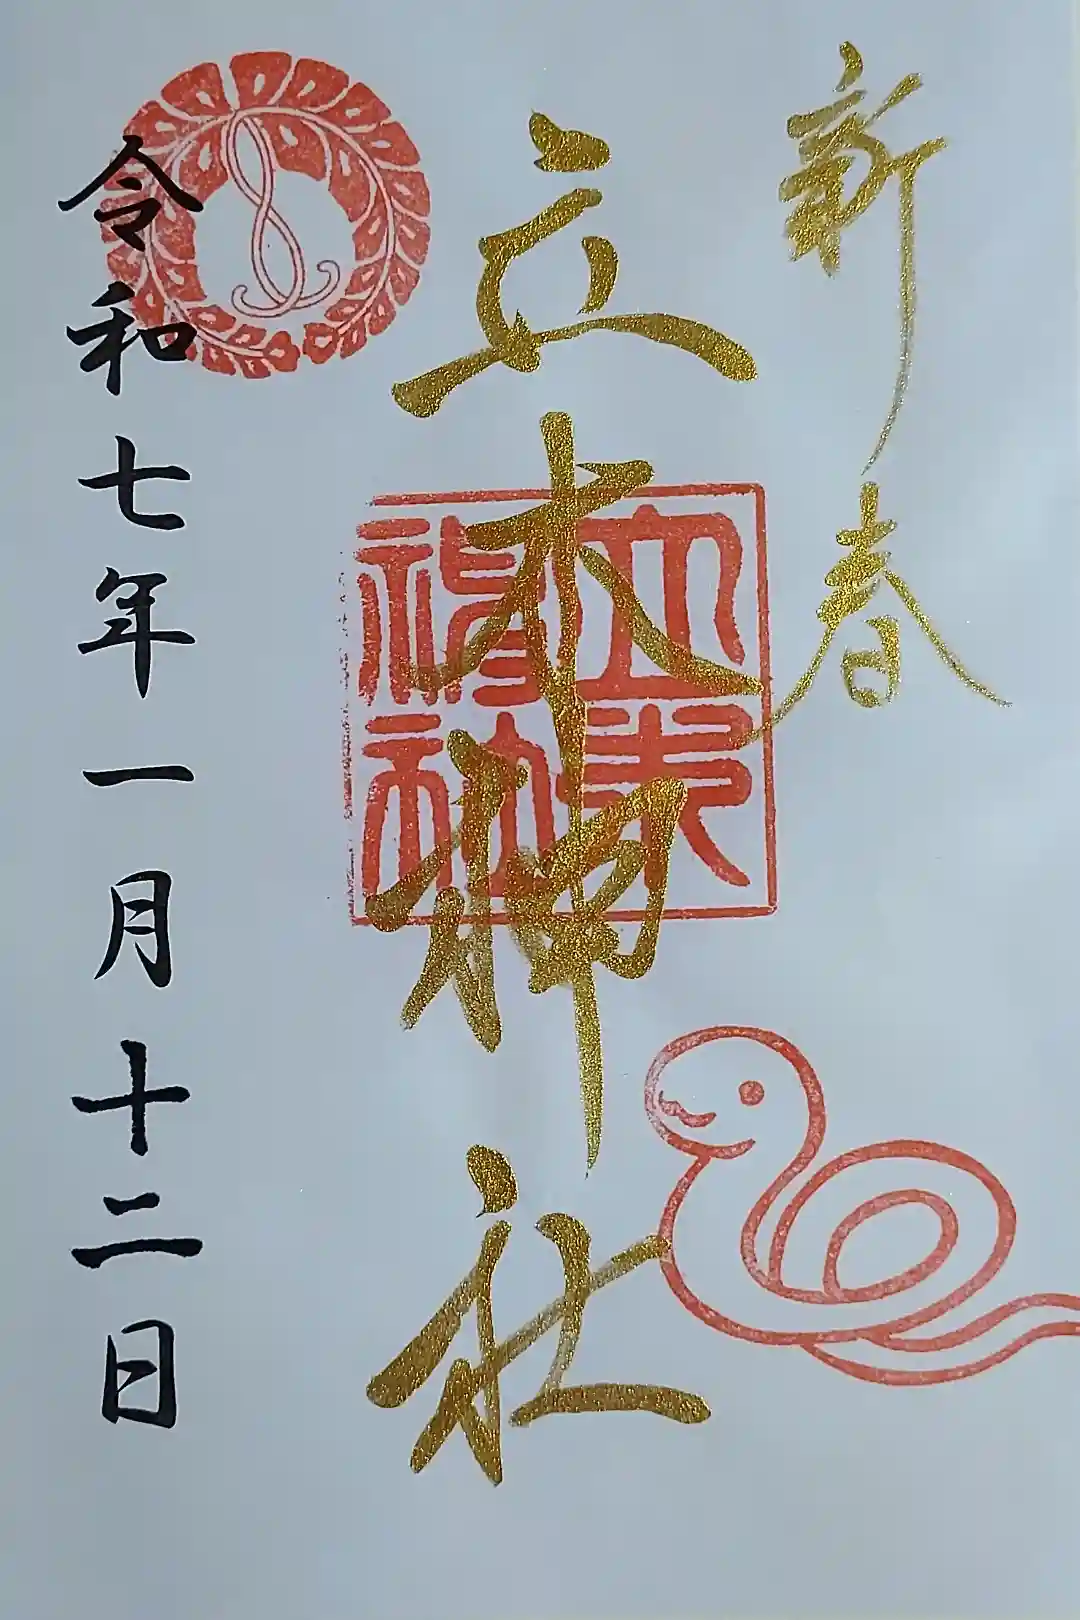 新春
立木神社
立木神社
令和七年一月十二日